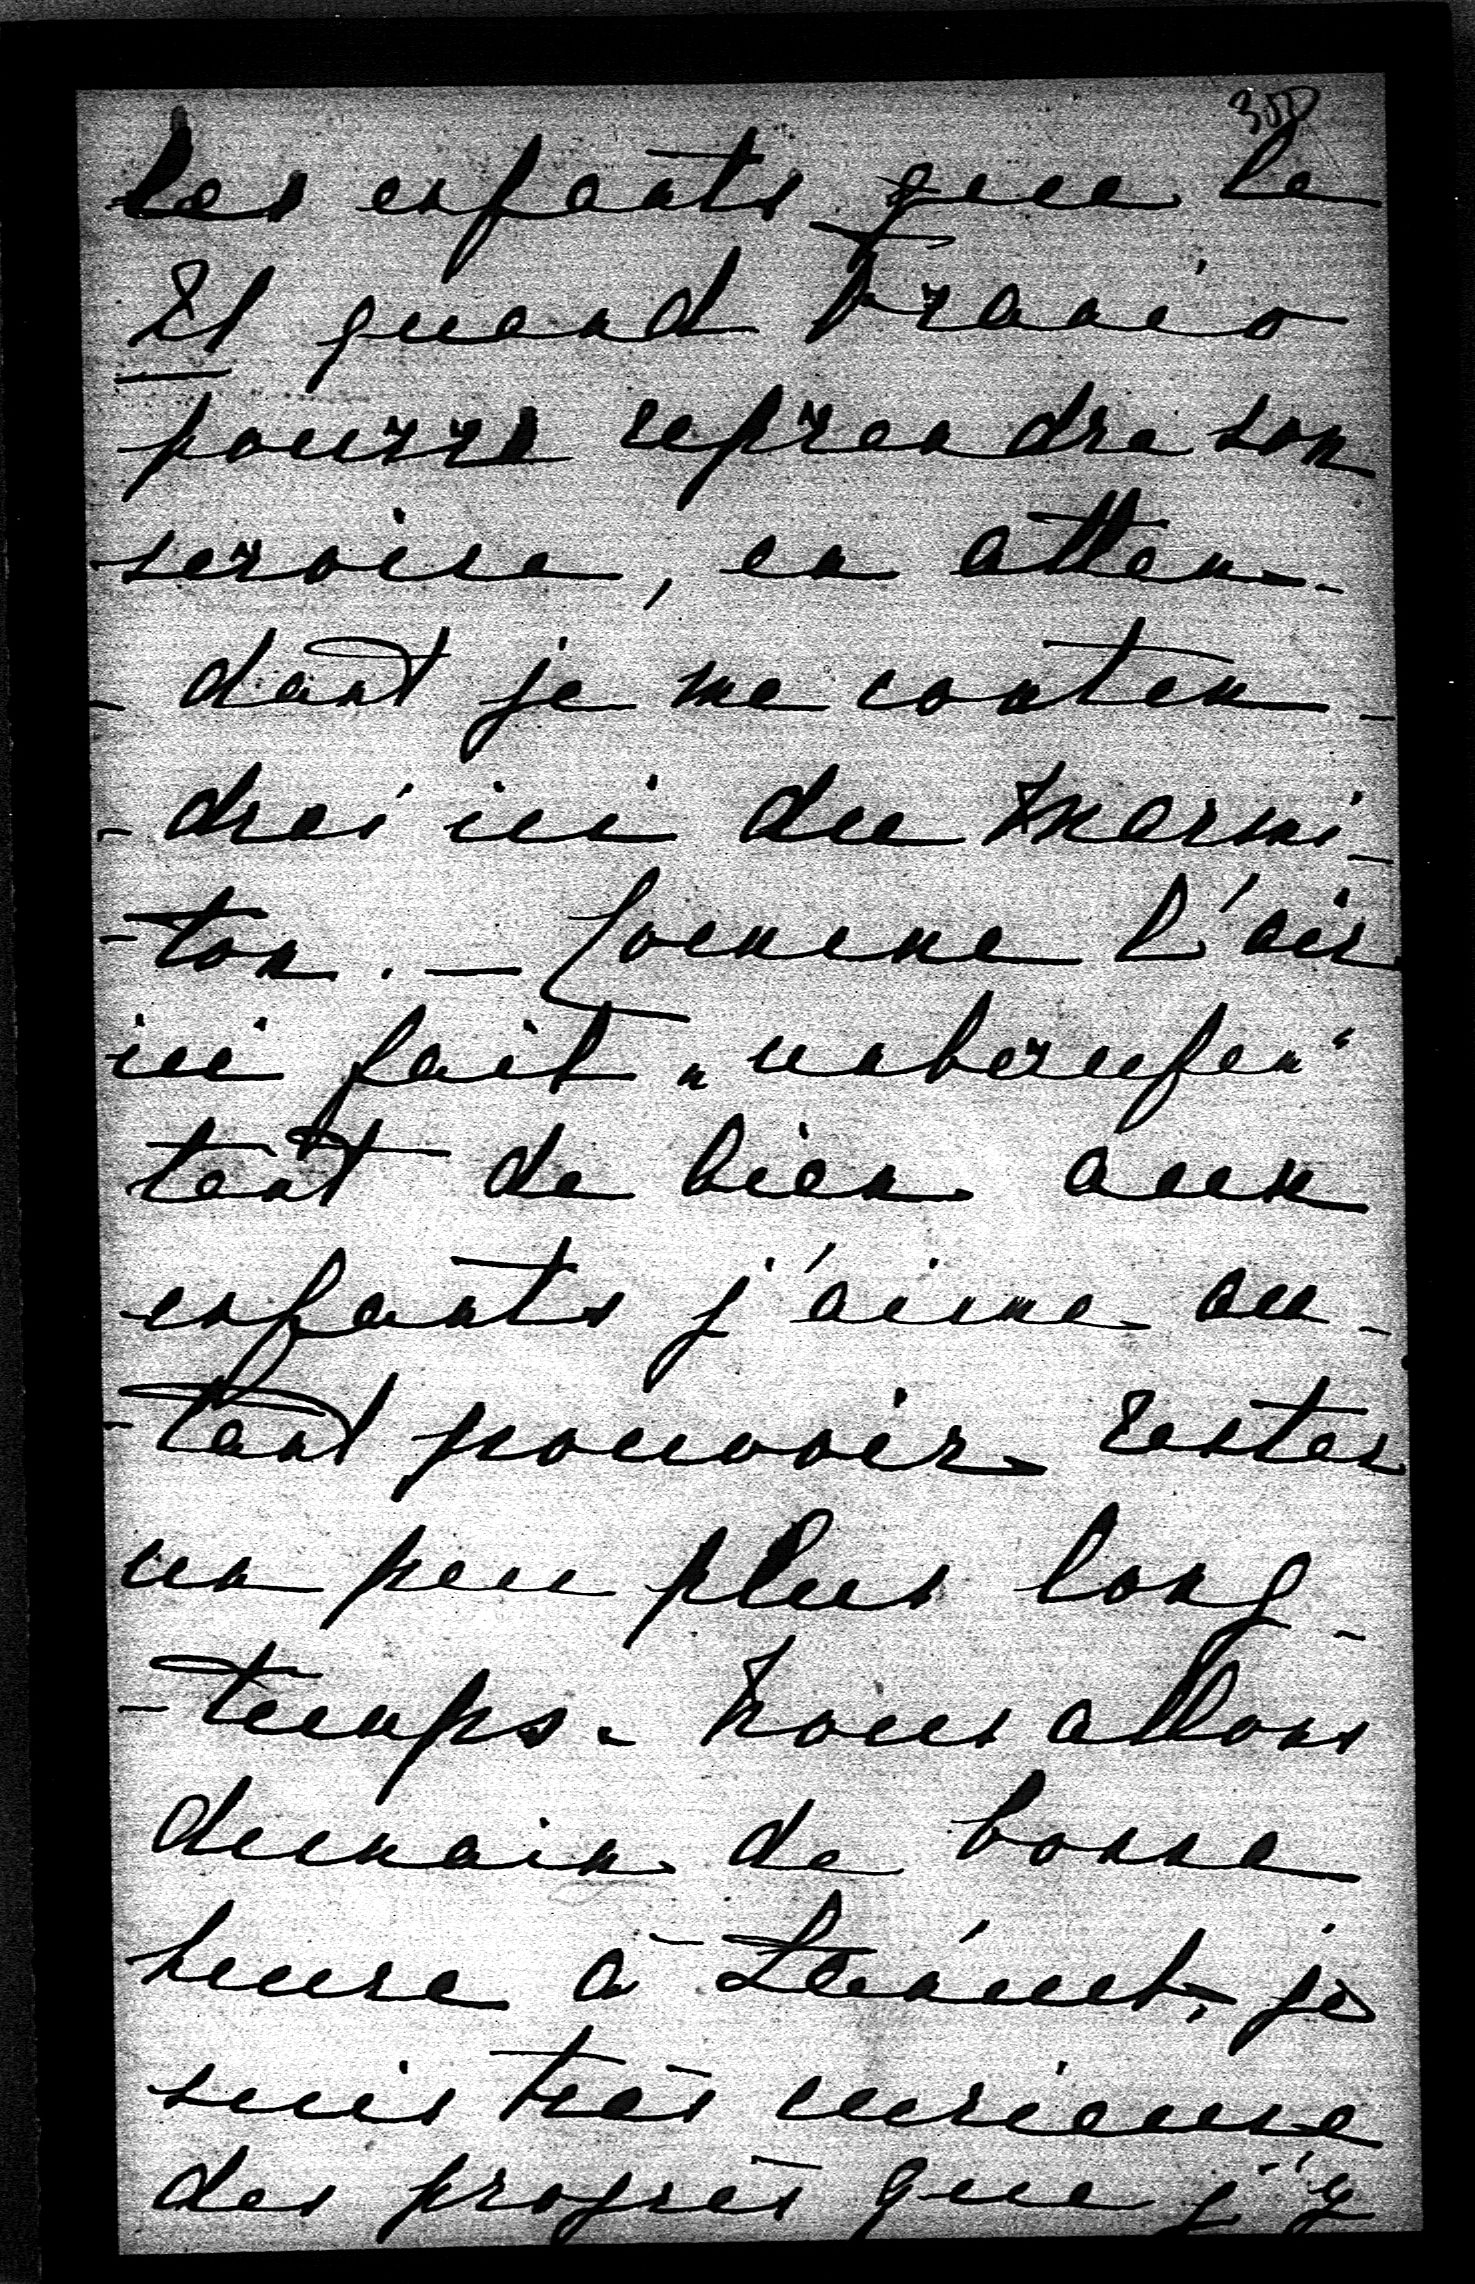 les enfants que le
21 quand Francis
pourra reprendre son
service, en atten-
-dant je me conten-
-drai ici du marmi-
-ton. — Comme l'air
ici fait „unberufen"
tant de bien aux
enfants j'aime au-
-tant pouvoir rester
un peu plus long-
-temps. Nous allons
demain de bonne
heure à je
suis très curieuse
des progrès que j'y